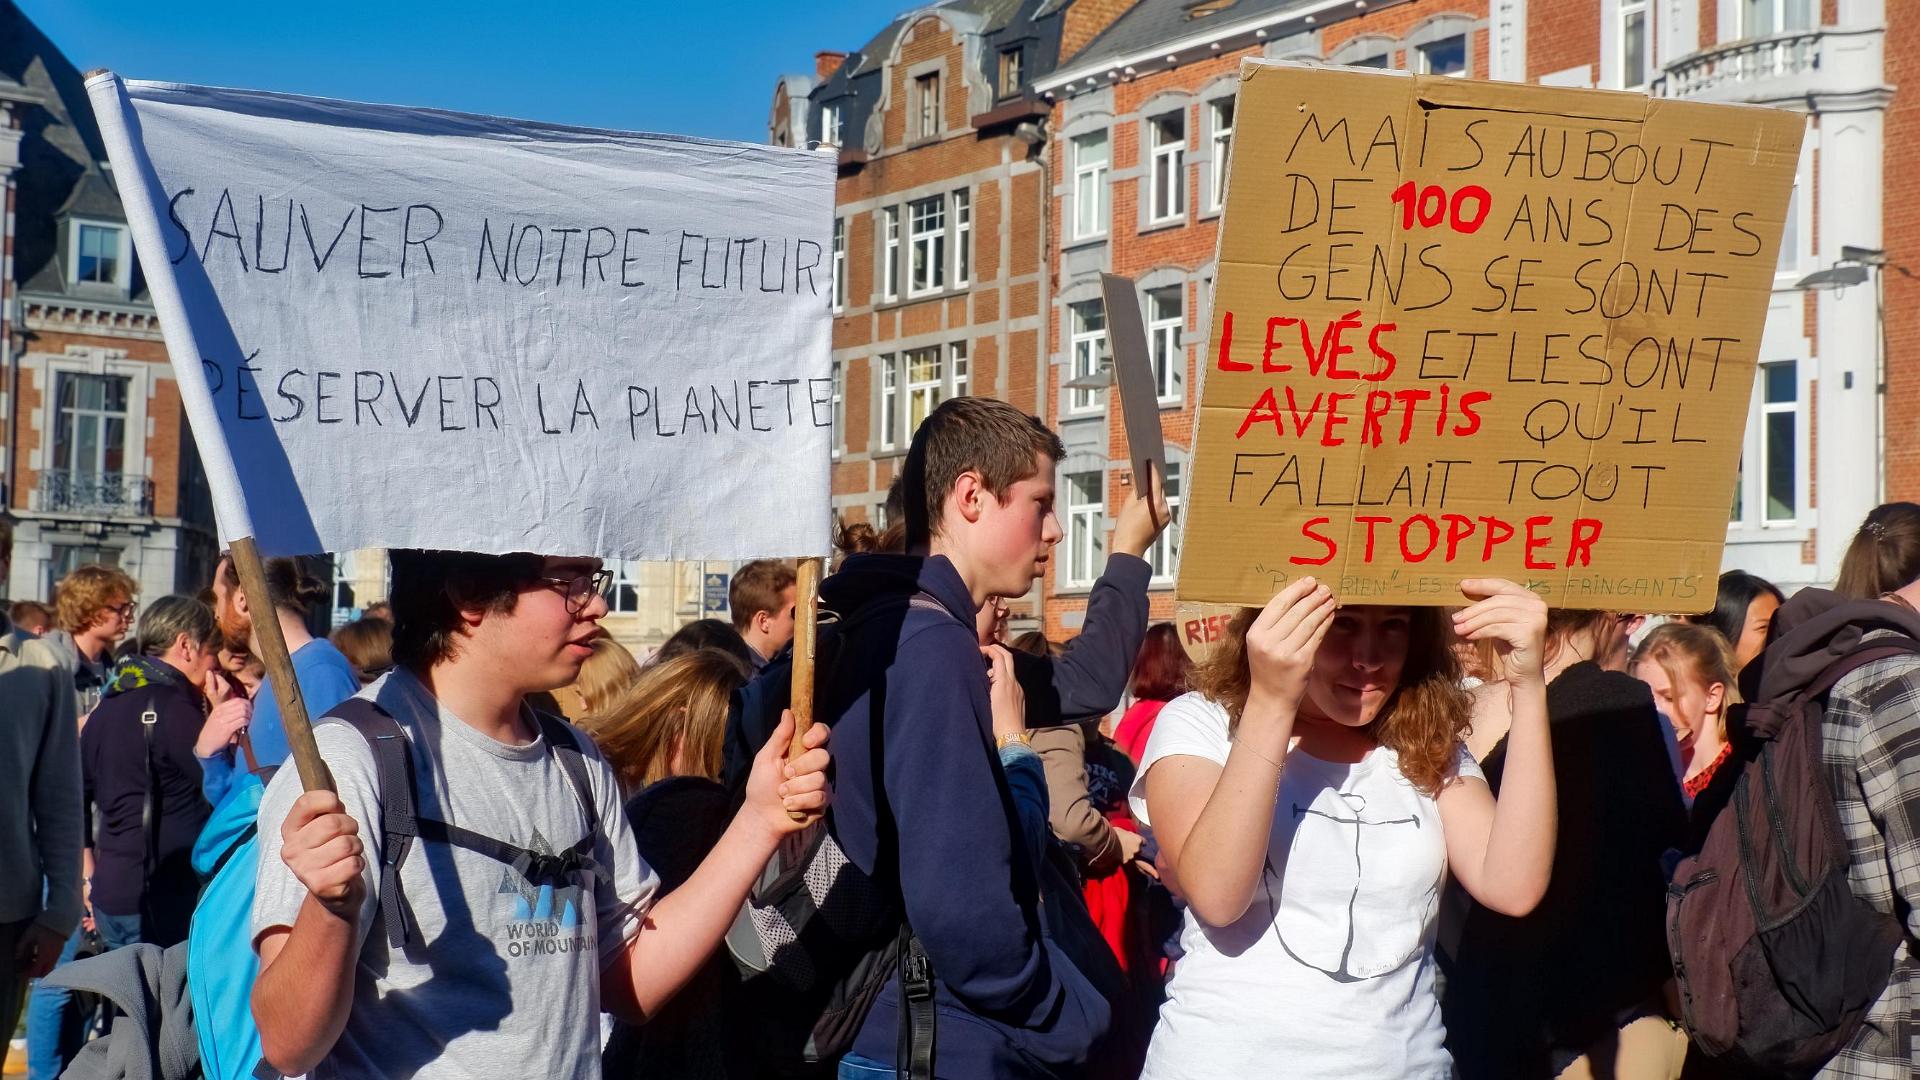 SAUVER NOTRE FUTUR
PÉSERVER LA PLANETE
MAIS AU BOUT
DE 100 ANS DES
GENS SE SONT
LEVÉS ET LES ONT
AVERTIS QU'IL
FALLAIT TOUT
STOPPER
RIEN"-LES FRINGANTS
WORLD
OF MOUNTAIN
RISE